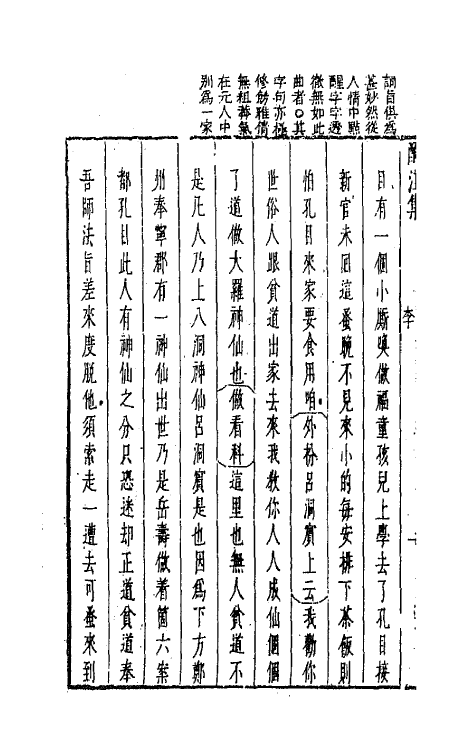 詞旨俱為
甚妙然從
人情中點
醒字字透
徹無如此
曲者○其
字句亦極
修飭雅
無粗莽氣
在元人中
別為一家
酹江集
李
目有一個小廝喚做福童孩兒上學去了孔目接
新官未囘這蚤晚不見來小的每安排下茶飯則
怕孔目來家要食用咱外扮呂洞賓上云我勸你
世俗人跟貧道出家去來我教你人人成仙個個
了道做大羅神仙也做看科這里也無人貧道不
是凡人乃上八洞神仙呂洞賓是也因為下方鄭
州奉寧郡有一神仙出世乃是岳壽做着箇六案
都孔目此人有神仙之分只恐迷却正道貧道奉
吾師法旨差來度脫他須索走一遭去可蚤來到